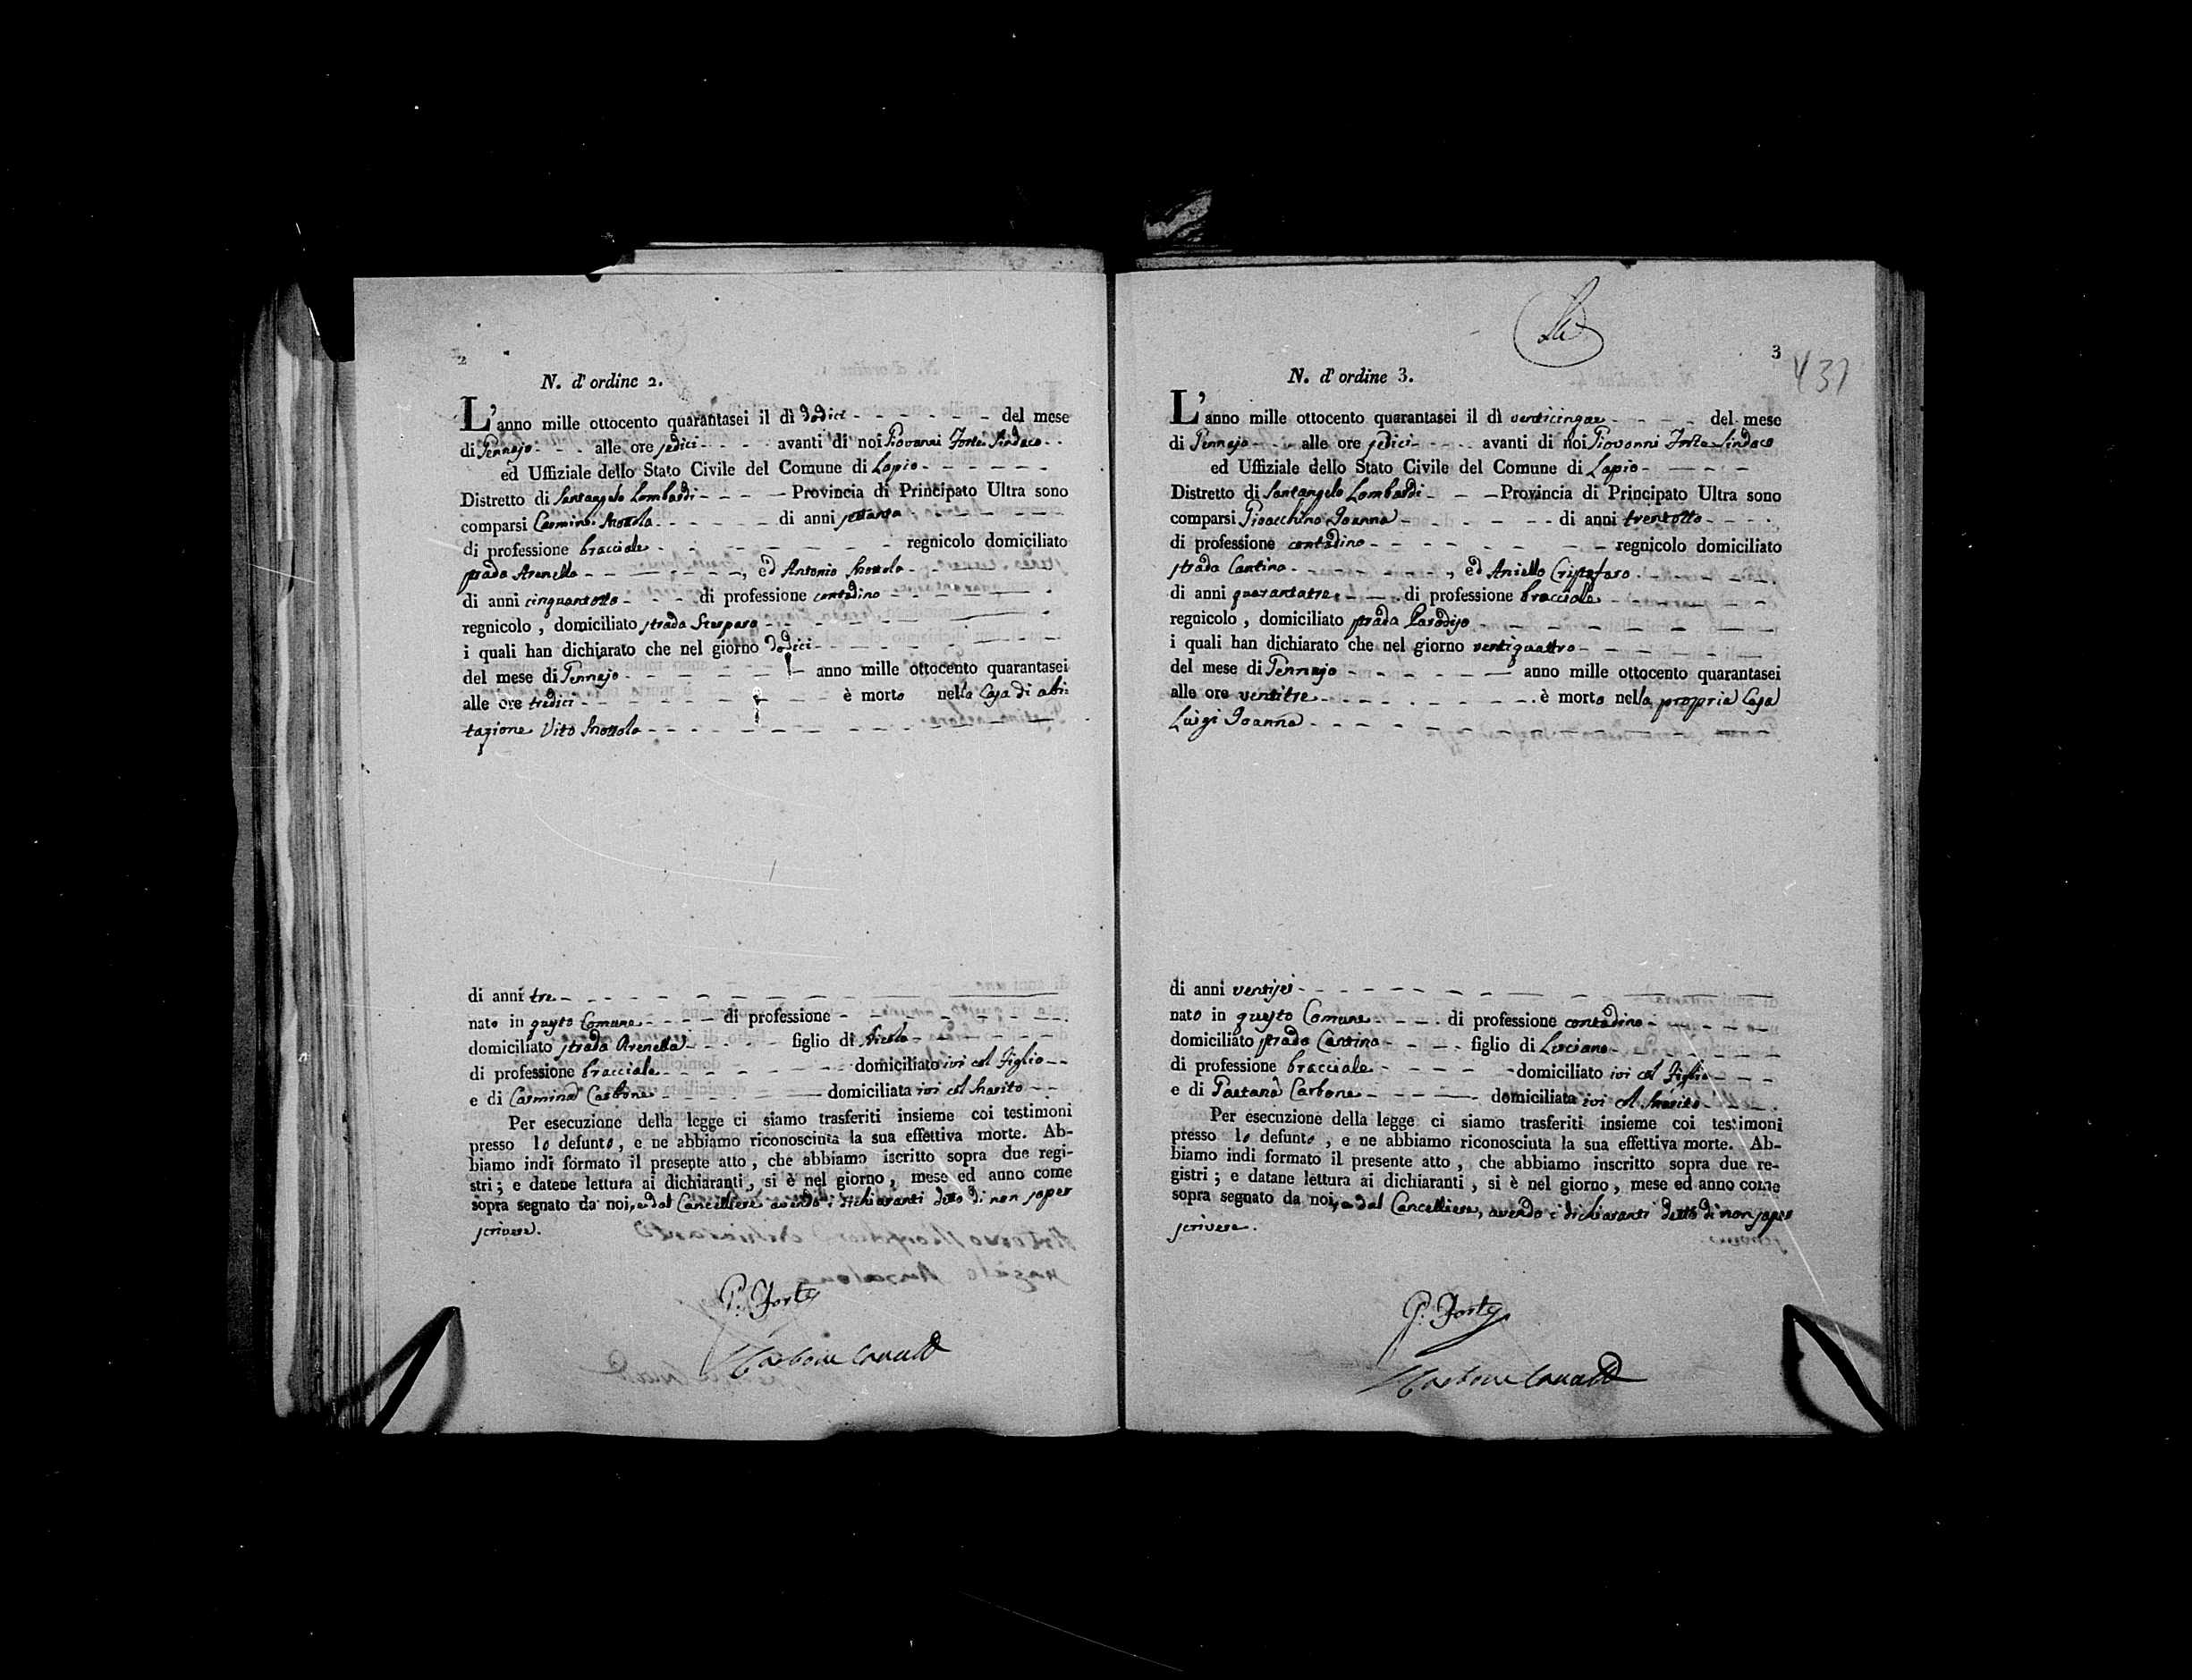 2
N. d' ordine 2.
L'anno mille ottocento quarantasei il dì dodici del mese
di Gennajo alle ore sedici avanti di noi Giovanni Forte Sindaco
ed Uffiziale dello Stato Civile del Comune di Lapio
Distretto di Santangelo Lombardi Provincia di Principato Ultra sono
comparsi Carmine di anni settanta
di professione bracciale regnicolo domiciliato
strada Arenella, ed Antonio
di anni cinquantotto di professione contadino
regnicolo, domiciliato strada
i quali han dichiarato che nel giorno dodici
del mese di Gennajo anno mille ottocento quarantasei
alle ore tredici è morto nella Casa di abi=
tazione Vito
di anni tre
nato in questo Comune di professione
domiciliato strada Arenella figlio di Nicola
di professione bracciale domiciliato ivi col Figlio
e di Carmina Carbone domiciliata ivi col Marito
Per esecuzione della legge ci siamo trasferiti insieme coi testimoni
presso lo defunto, e ne abbiamo riconosciuta la sua effettiva morte. Ab-
biamo indi formato il presente atto, che abbiamo iscritto sopra due regi-
stri; e datene lettura ai dichiaranti, si è nel giorno, mese ed anno come
sopra segnato da noi, e dal Cancelliere avendo i dichiaranti detto di non saper
scrivere.
G. Forte
Carbone
3
437
N. d' ordine 3.
L'anno mille ottocento quarantasei il dì venticinque del mese
di Gennajo alle ore sedici avanti di noi Giovanni Forte Sindaco
ed Uffiziale dello Stato Civile del Comune di Lapio
Distretto di Santangelo Lombardi Provincia di Principato Ultra sono
comparsi Gioacchino Joanna di anni trentotto
di professione contadino regnicolo domiciliato
strada Cantina, ed Aniello Cristofaro
di anni quarantatre di professione bracciale
regnicolo, domiciliato strada Paradiso
i quali han dichiarato che nel giorno ventiquattro
del mese di Gennajo anno mille ottocento quarantasei
alle ore ventitre è morto nella propria Casa
Luigi Joanna
di anni ventisei
nato in questo Comune di professione contadino
domiciliato strada Cantina figlio di Luciano
di professione bracciale domiciliato ivi col Figlio
e di Gaetana Carbone domiciliata ivi col Marito
Per esecuzione della legge ci siamo trasferiti insieme coi testimoni
presso lo defunto, e ne abbiamo riconosciuta la sua effettiva morte. Ab-
biamo indi formato il presente atto, che abbiamo inscritto sopra due re-
gistri; e datane lettura ai dichiaranti, si è nel giorno, mese ed anno come
sopra segnato da noi, e dal Cancelliere, avendo i dichiaranti detto di non saper
scrivere.
G. Forte
Carbone